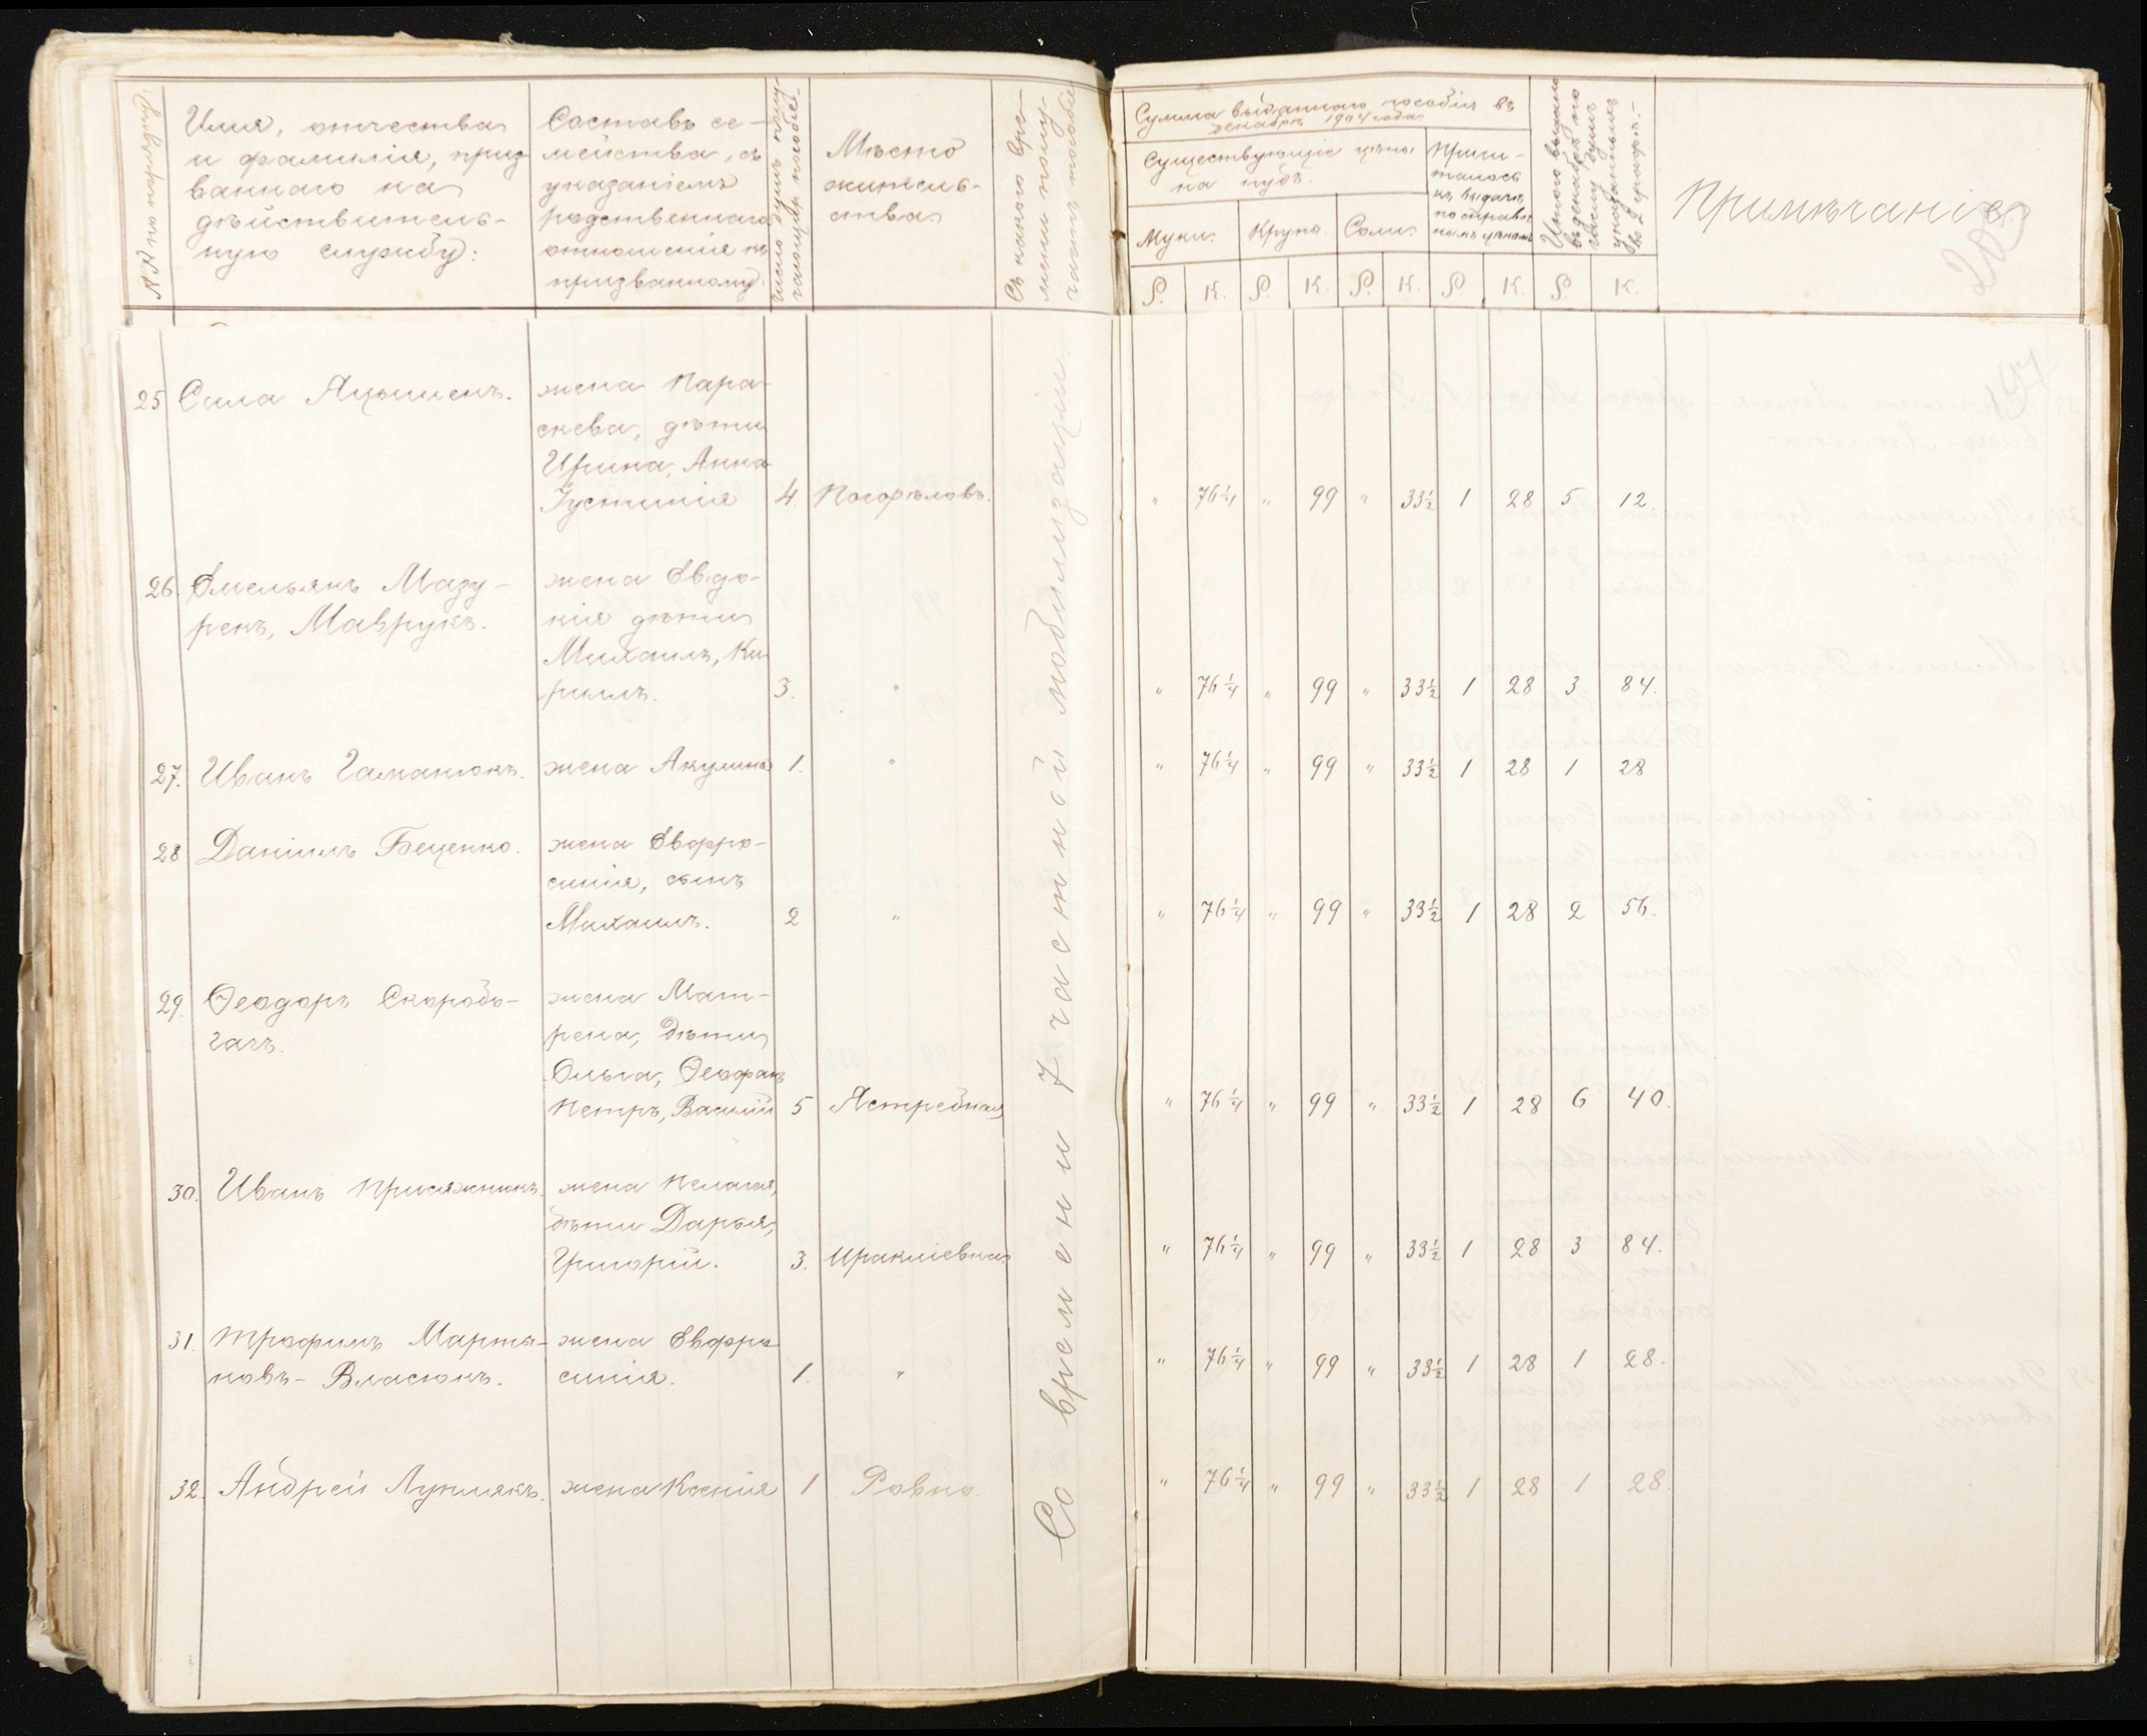 №№ по порядку.
Имя, отчества
и фамилія, приз
ваннаго на
дѣйствитель-
ную службу:
Составъ се-
мейства, съ
указаніемъ
родственнаго
отношенія къ
призванному.
Число душъ полу-
чающихъ пособіе.
Мѣсто
житель-
ства
Съ какого вре-
мени полу-
чаютъ пособіе
Сумма выданнаго пособія въ
декабрѣ 1904 года
Существующія цѣны
на пудъ.
Муки.
Крупы.
Соли.
Причи-
талось
къ выдачѣ
по справоч
нымъ цѣнамъ
Итого выдано
въ декабрѣ по
числу душъ
указаннымъ
въ 2 графѣ.-
Примѣчаніе.
205
Р. К. Р. К. Р. К. Р. К. Р. К.
Со времени 7 частной мобилизаціи
25 Сила Яцышенъ. жена Пара-
скева, дѣти
Ирина, Анна
Іустинія 4 Погорѣловъ. " 76¼ " 99 " 33½ 1 28 5 12.
26. Емельянъ Мазу- жена Евдо-
рекъ, Маврукъ. кія дѣти
Михаилъ, Ки
риллъ. 3. " " 76¼ " 99 " 33½ 1 28 3 84.
27. Иванъ Гаманюкъ. жена Акулина 1. " " 76¼ " 99 " 33½ 1 28 1 28
28 Даніилъ Беценко. жена Евфро-
синія, сынъ
Михаилъ. 2 " " 76¼ " 99 " 33½ 1 28 2 56.
29. Ѳеодоръ Скоробо- жена Мат-
гачъ. рена, дѣти
Ольга, Ѳеофанъ
Петръ, Василій 5 Ястребная " 76¼ " 99 " 33½ 1 28 6 40.
30. Иванъ Присяжнюкъ. жена Пелагія,
дѣти Дарья,
Григорій. 3. Иракліевка " 76¼ " 99 " 33½ 1 28 3 84.
31. Трофимъ Марты- жена Евфро
новъ-Власюкъ. синія. 1. " " 76¼ " 99 " 33½ 1 28 1 28.
32. Андрей Лупиякъ. жена Ксенія 1 Ровно. " 76¼ " 99 " 33½ 1 28 1 28.